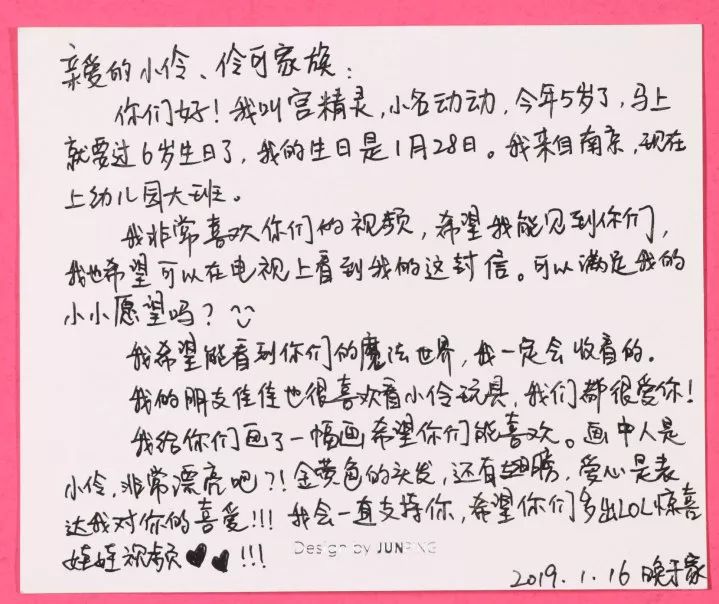 亲爱的小伶、伶可家族：
你们好！我叫宫精灵，小名动动，今年5岁了，马上
就要过6岁生日了，我的生日是1月28日。我来自南京，现在
上幼儿园大班。
我非常喜欢你们的视频，希望我能见到你们，
我也希望可以在电视上看到我的这封信。可以满足我的
小小愿望吗？
我希望能看到你们的魔法世界，我一定会收看的。
我的朋友佳佳也很喜欢看小伶玩具，我们都很爱你！
我给你们画了一幅画希望你们能喜欢。画中人是
小伶，非常漂亮吧？！金黄色的头发，还有翅膀，爱心是表
达我对你的喜爱！！！我会一直支持你，希望你们多出LOL惊喜
娃娃视频♥♥！！！
Design by JUNPING
2019.1.16 晚于家